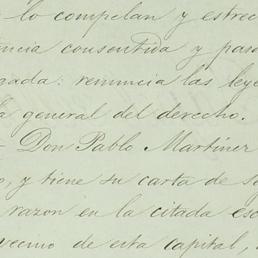 lo compelan y estrec
tencia consentida y pasa
gada: renuncia las leye
la general del derecho.
- Don Pablo Martiner
o, y tiene su carta de se
razon en la citada esc
vecino de esta capital,